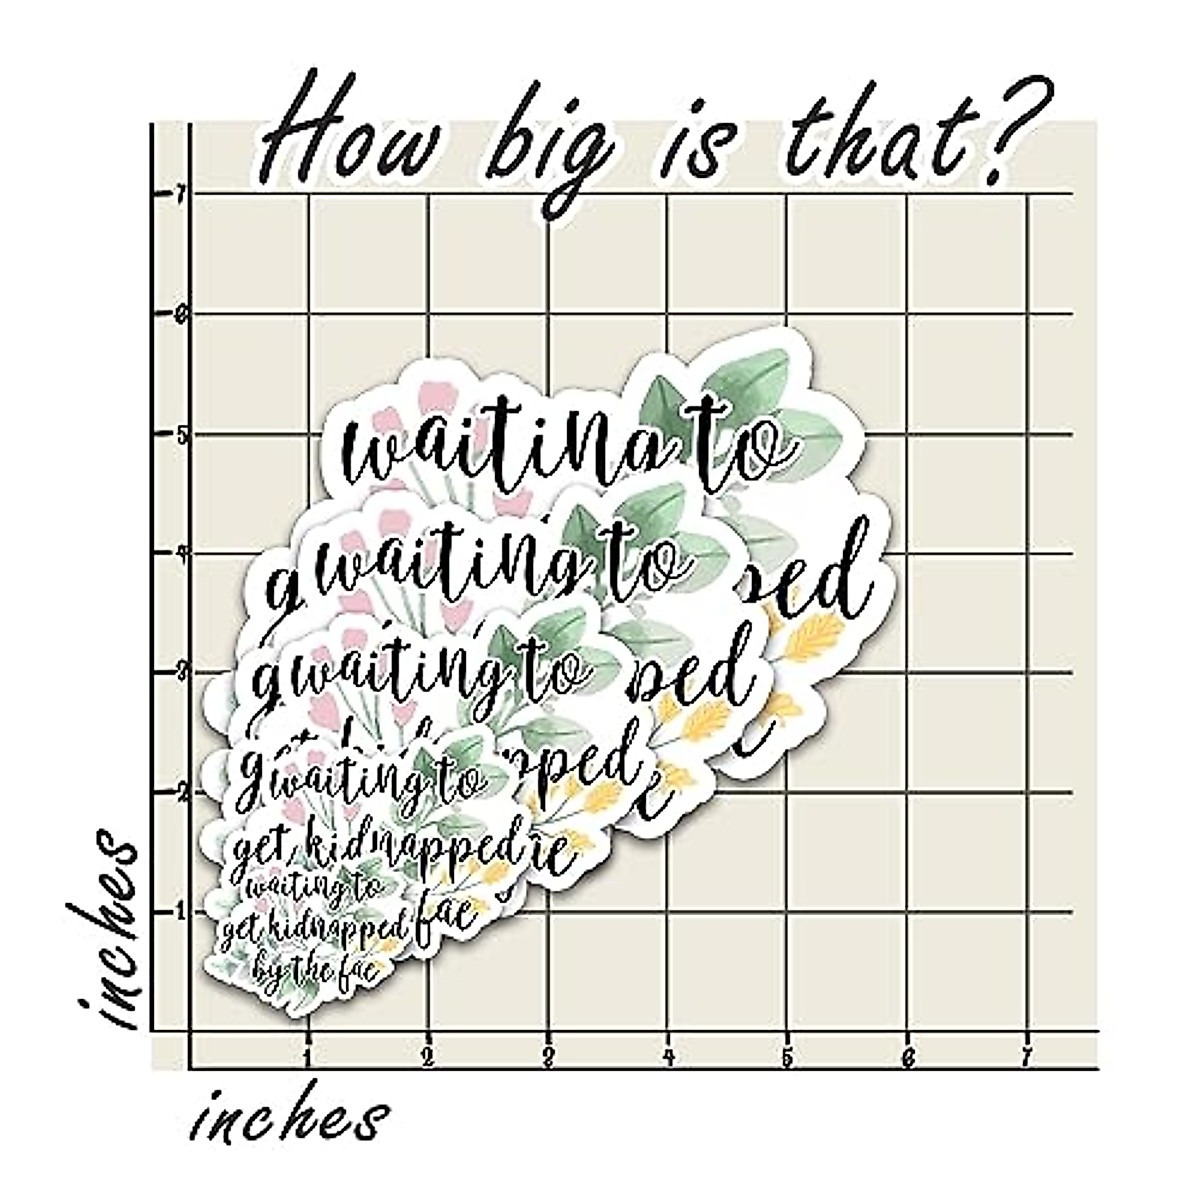 How big is that?
7
6
5
4
3
2
1
waiting to
g ped
waiting to
g ped
waiting to
get kid pped
waiting to
get kidnapped ie
fae
waiting to
get kidnapped
by the fae
1
2
3
4
5
6
7
inches
inches